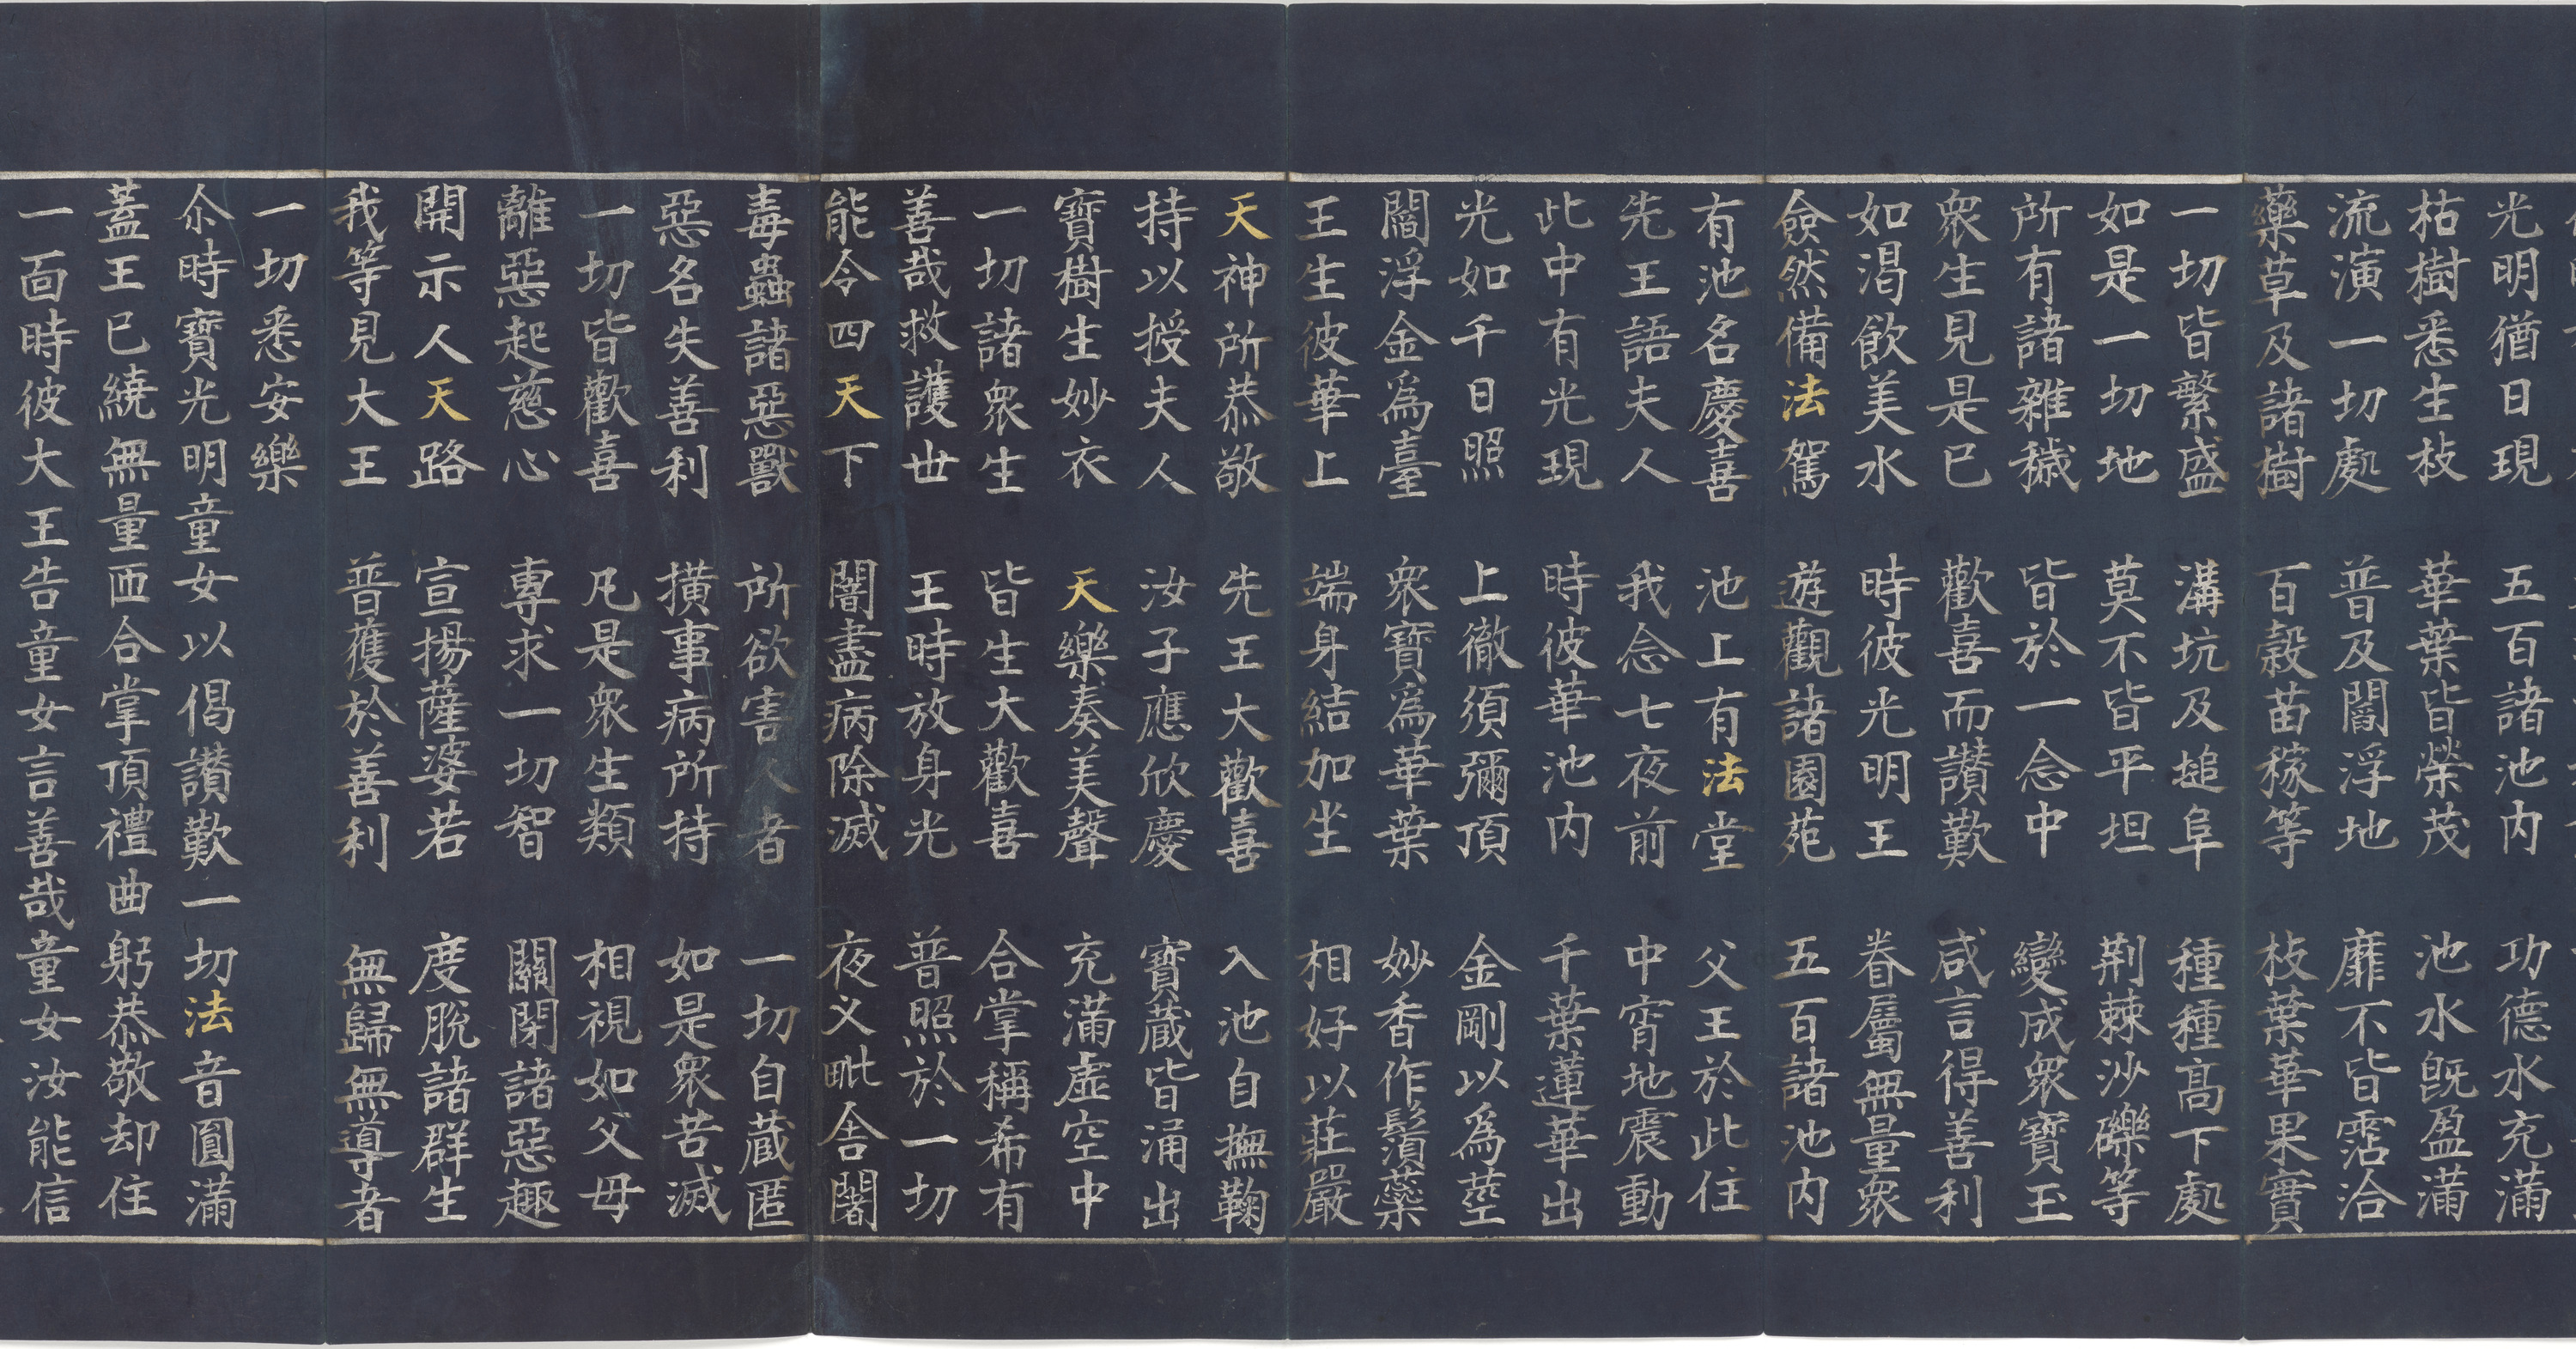 光明猶日現 五百諸池内 功德水充滿
枯樹悉生枝 華葉皆榮茂 池水旣盈滿
流演一切處 普及閻浮地 靡不皆霑洽
藥草及諸樹 百穀苗稼等 枝葉華果實
一切皆繁盛 溝坑及塠阜 種種髙下處
如是一切地 莫不皆平坦 荆棘沙礫等
所有諸雜穢 皆於一念中 變成衆寶玉
衆生見是已 歡喜而讃歎 咸言得善利
如渴飲美水 時彼光明王 眷屬無量衆
僉然備法駕 遊觀諸園苑 五百諸池内
有池名慶喜 池上有法堂 父王於此住
先王語夫人 我念七夜前 中宵地震動
此中有光現 時彼華池内 千葉蓮華出
光如千日照 上徹須彌頂 金剛以爲莖
閻浮金爲臺 衆寶爲華葉 妙香作鬚蘂
王生彼華上 端身結加坐 相好以莊嚴
天神所恭敬 先王大歡喜 入池自撫鞠
持以授夫人 汝子應欣慶 寶藏皆涌出
寶樹生妙衣 天樂奏美聲 充滿虛空中
一切諸衆生 皆生大歡喜 合掌稱希有
善哉救護世 王時放身光 普照於一切
能令四天下 闇盡病除滅 夜叉毗舍闍
毒蟲諸惡獸 所欲害人者 一切自藏匿
惡名失善利 撗事病所持 如是衆苦滅
一切皆歡喜 凡是衆生類 相視如父母
離惡起慈心 專求一切智 關閉諸惡趣
開示人天路 宣揚薩婆若 度脫諸群生
我等見大王 普獲於善利 無歸無導者
一切悉安樂
尒時寶光明童女以偈讃歎一切法音圓滿
蓋王已繞無量匝合掌頂禮曲躬恭敬却住
一面時彼大王告童女言善哉童女汝能信